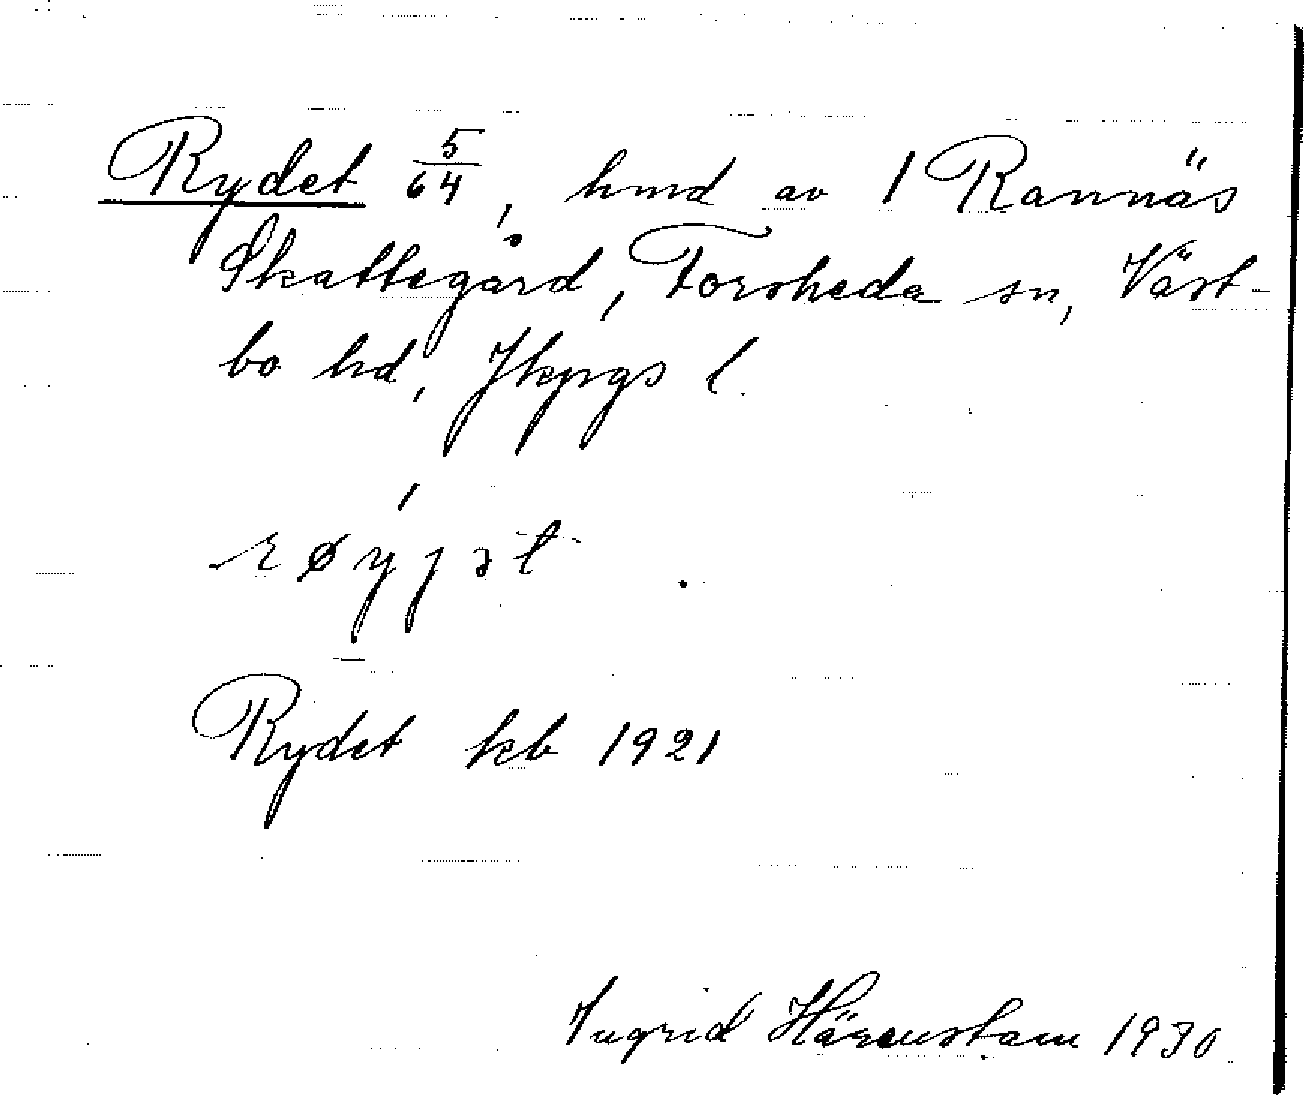 Rydet 5/64, hmd av 1 Rannäs
Skattegård, Forsheda sn, Väst-
bo hd, Jkpgs l.
Rydet kb 1921
Ingrid Härenstam 1930